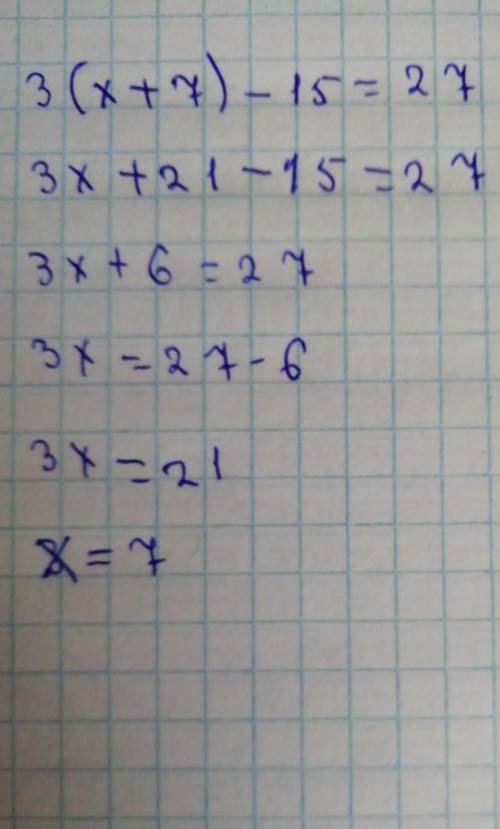 3(x+7)-15=27
3x+21-15=27
3x+6=27
3x=27-6
3x=21
x=7